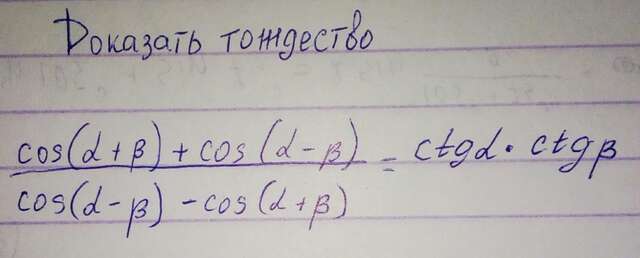 Доказать тождество
cos(α + β) + cos(α - β)
cos(α - β) - cos(α + β)
= ctgα · ctgβ